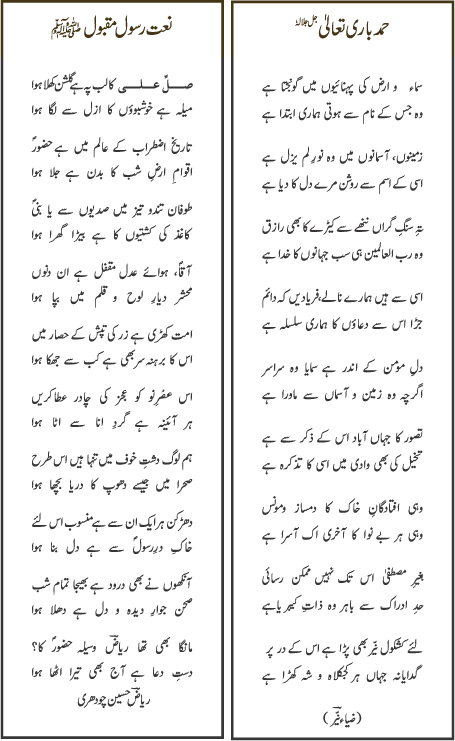 حمد باری تعالیٰ جل جلالہٗ
سماء و ارض کی پہنائیوں میں گونجتا ہے
وہ جس کے نام سے ہوتی ہماری ابتدا ہے
زمینوں، آسمانوں میں وہ نورِ لم یزل ہے
اسی کے اسم سے روشن مرے دل کا دیا ہے
تہِ سنگِ گراں ننھے سے کیڑے کا بھی رازق
وہ رب العالمین ہی سب جہانوں کا خدا ہے
اسی سے ہیں ہمارے نالے، فریادیں کہ دائم
جڑا اس سے دعاؤں کا ہماری سلسلہ ہے
دلِ مؤمن کے اندر ہے سمایا وہ سراسر
اگرچہ وہ زمین و آسماں سے ماورا ہے
تصور کا جہاں آباد اس کے ذکر سے ہے
تخیل کی بھی وادی میں اسی کا تذکرہ ہے
وہی افتادگانِ خاک کا دمساز و مونس
وہی ہر بے نوا کا آخری اک آسرا ہے
بغیرِ مصطفیٰ اس تک نہیں ممکن رسائی
حدِ ادراک سے باہر وہ ذاتِ کبریا ہے
لئے کشکول نیّر بھی پڑا ہے اس کے در پر
گدایانہ جہاں ہر کجکلاہ و شہ کھڑا ہے
(ضیاء نیّر)
نعت رسول مقبول ﷺ
صلِّ علیٰ کا لب پہ ہے گلشن کھلا ہوا
میلہ ہے خوشبوؤں کا ازل سے لگا ہوا
تاریخ اضطراب کے عالم میں ہے حضورؐ
اقوامِ ارضِ شب کا بدن ہے جلا ہوا
طوفان تند و تیز میں صدیوں سے یا نبیؐ
کاغذ کی کشتیوں کا ہے بیڑا گھرا ہوا
آقاؐ، ہوائے عدل مقفل ہے ان دنوں
محشر دیارِ لوح و قلم میں بپا ہوا
امت کھڑی ہے زر کی تپش کے حصار میں
اس کا برہنہ سر بھی ہے کب سے جھکا ہوا
اس عصرِ نو کو عجز کی چادر عطا کریں
ہر آئینہ ہے گردِ انا سے اٹا ہوا
ہم لوگ دشتِ خوف میں تنہا ہیں اس طرح
صحرا میں جیسے دھوپ کا دریا بچھا ہوا
دھڑکن ہر ایک ان سے ہے منسوب اس لئے
خاکِ درِ رسولؐ سے ہے دل بنا ہوا
آنکھوں نے بھی درود ہے بھیجا تمام شب
صحن جوارِ دیدہ و دل ہے دھلا ہوا
مانگا بھی تھا ریاضؔ وسیلہ حضورؐ کا؟
دستِ دعا ہے آج بھی تیرا اٹھا ہوا
ریاضؔ حسین چودھری